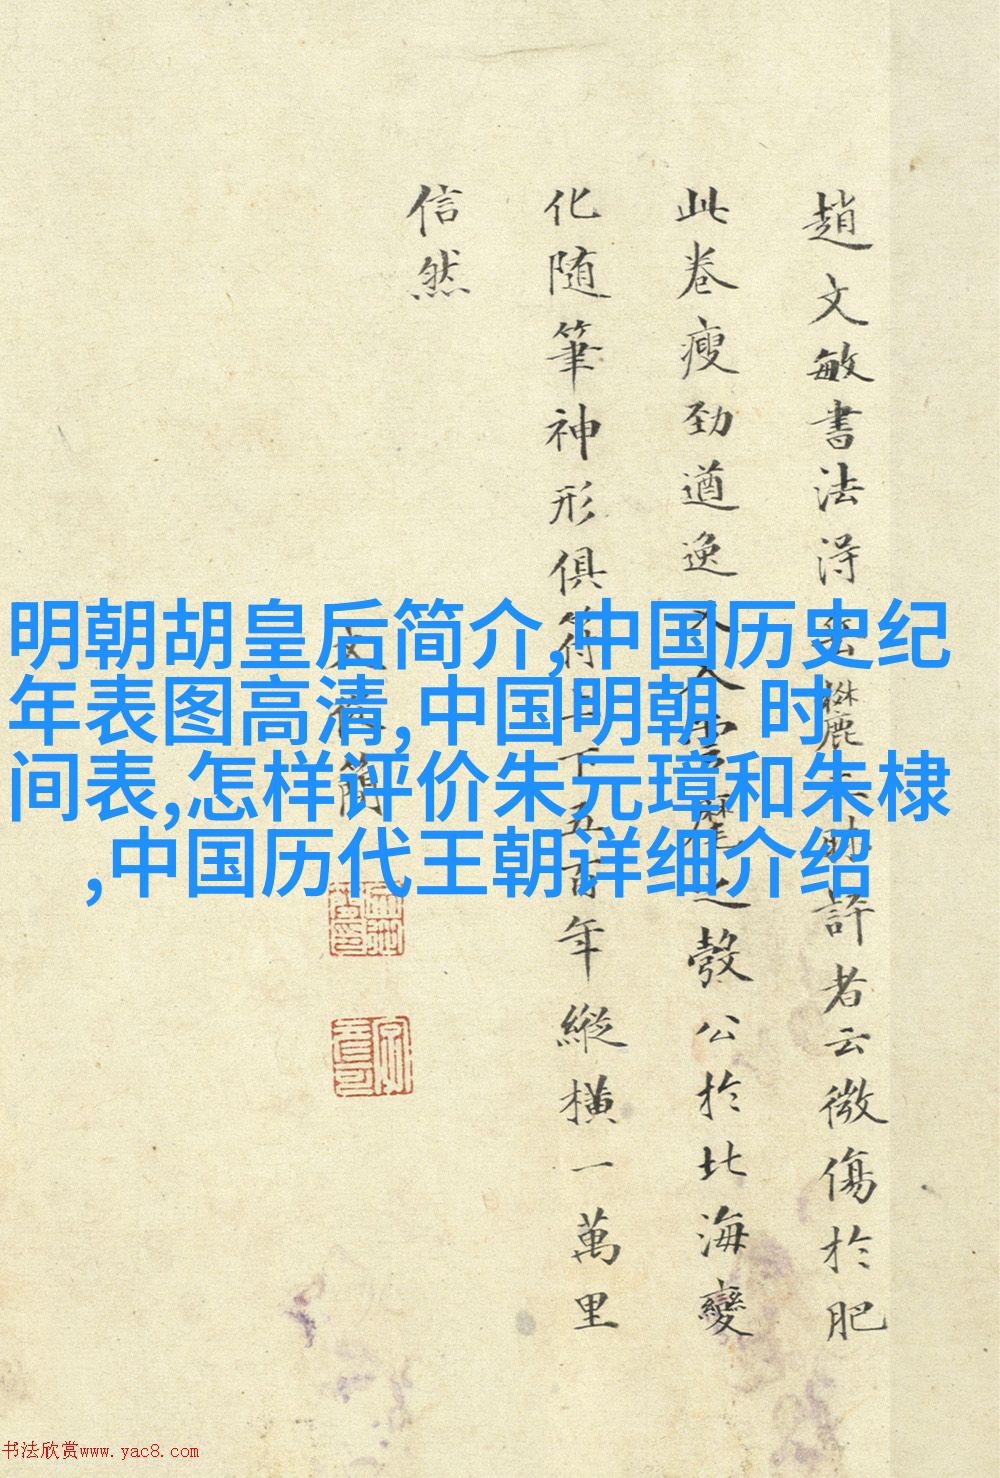 趙文敏書法得
助評者云微傷於肥
此卷瘦勁遒逸
之彀公於北海變
化随筆神形俱符
下五百年縱橫一萬里
信然
簡
明朝胡皇后简介,中国历史纪
年表图高清,中国明朝 时
间表,怎样评价朱元璋和朱棣
,中国历代王朝详细介绍
书法欣赏www.yac8.com